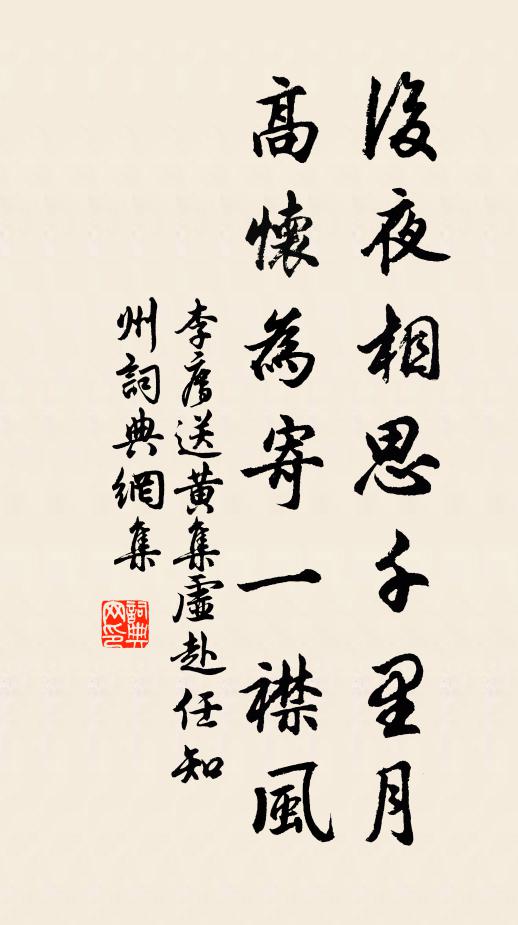 後夜相思千里月
高懷為寄一襟風
李廌送黃集虛赴任知
州詞典網集
詞典网印